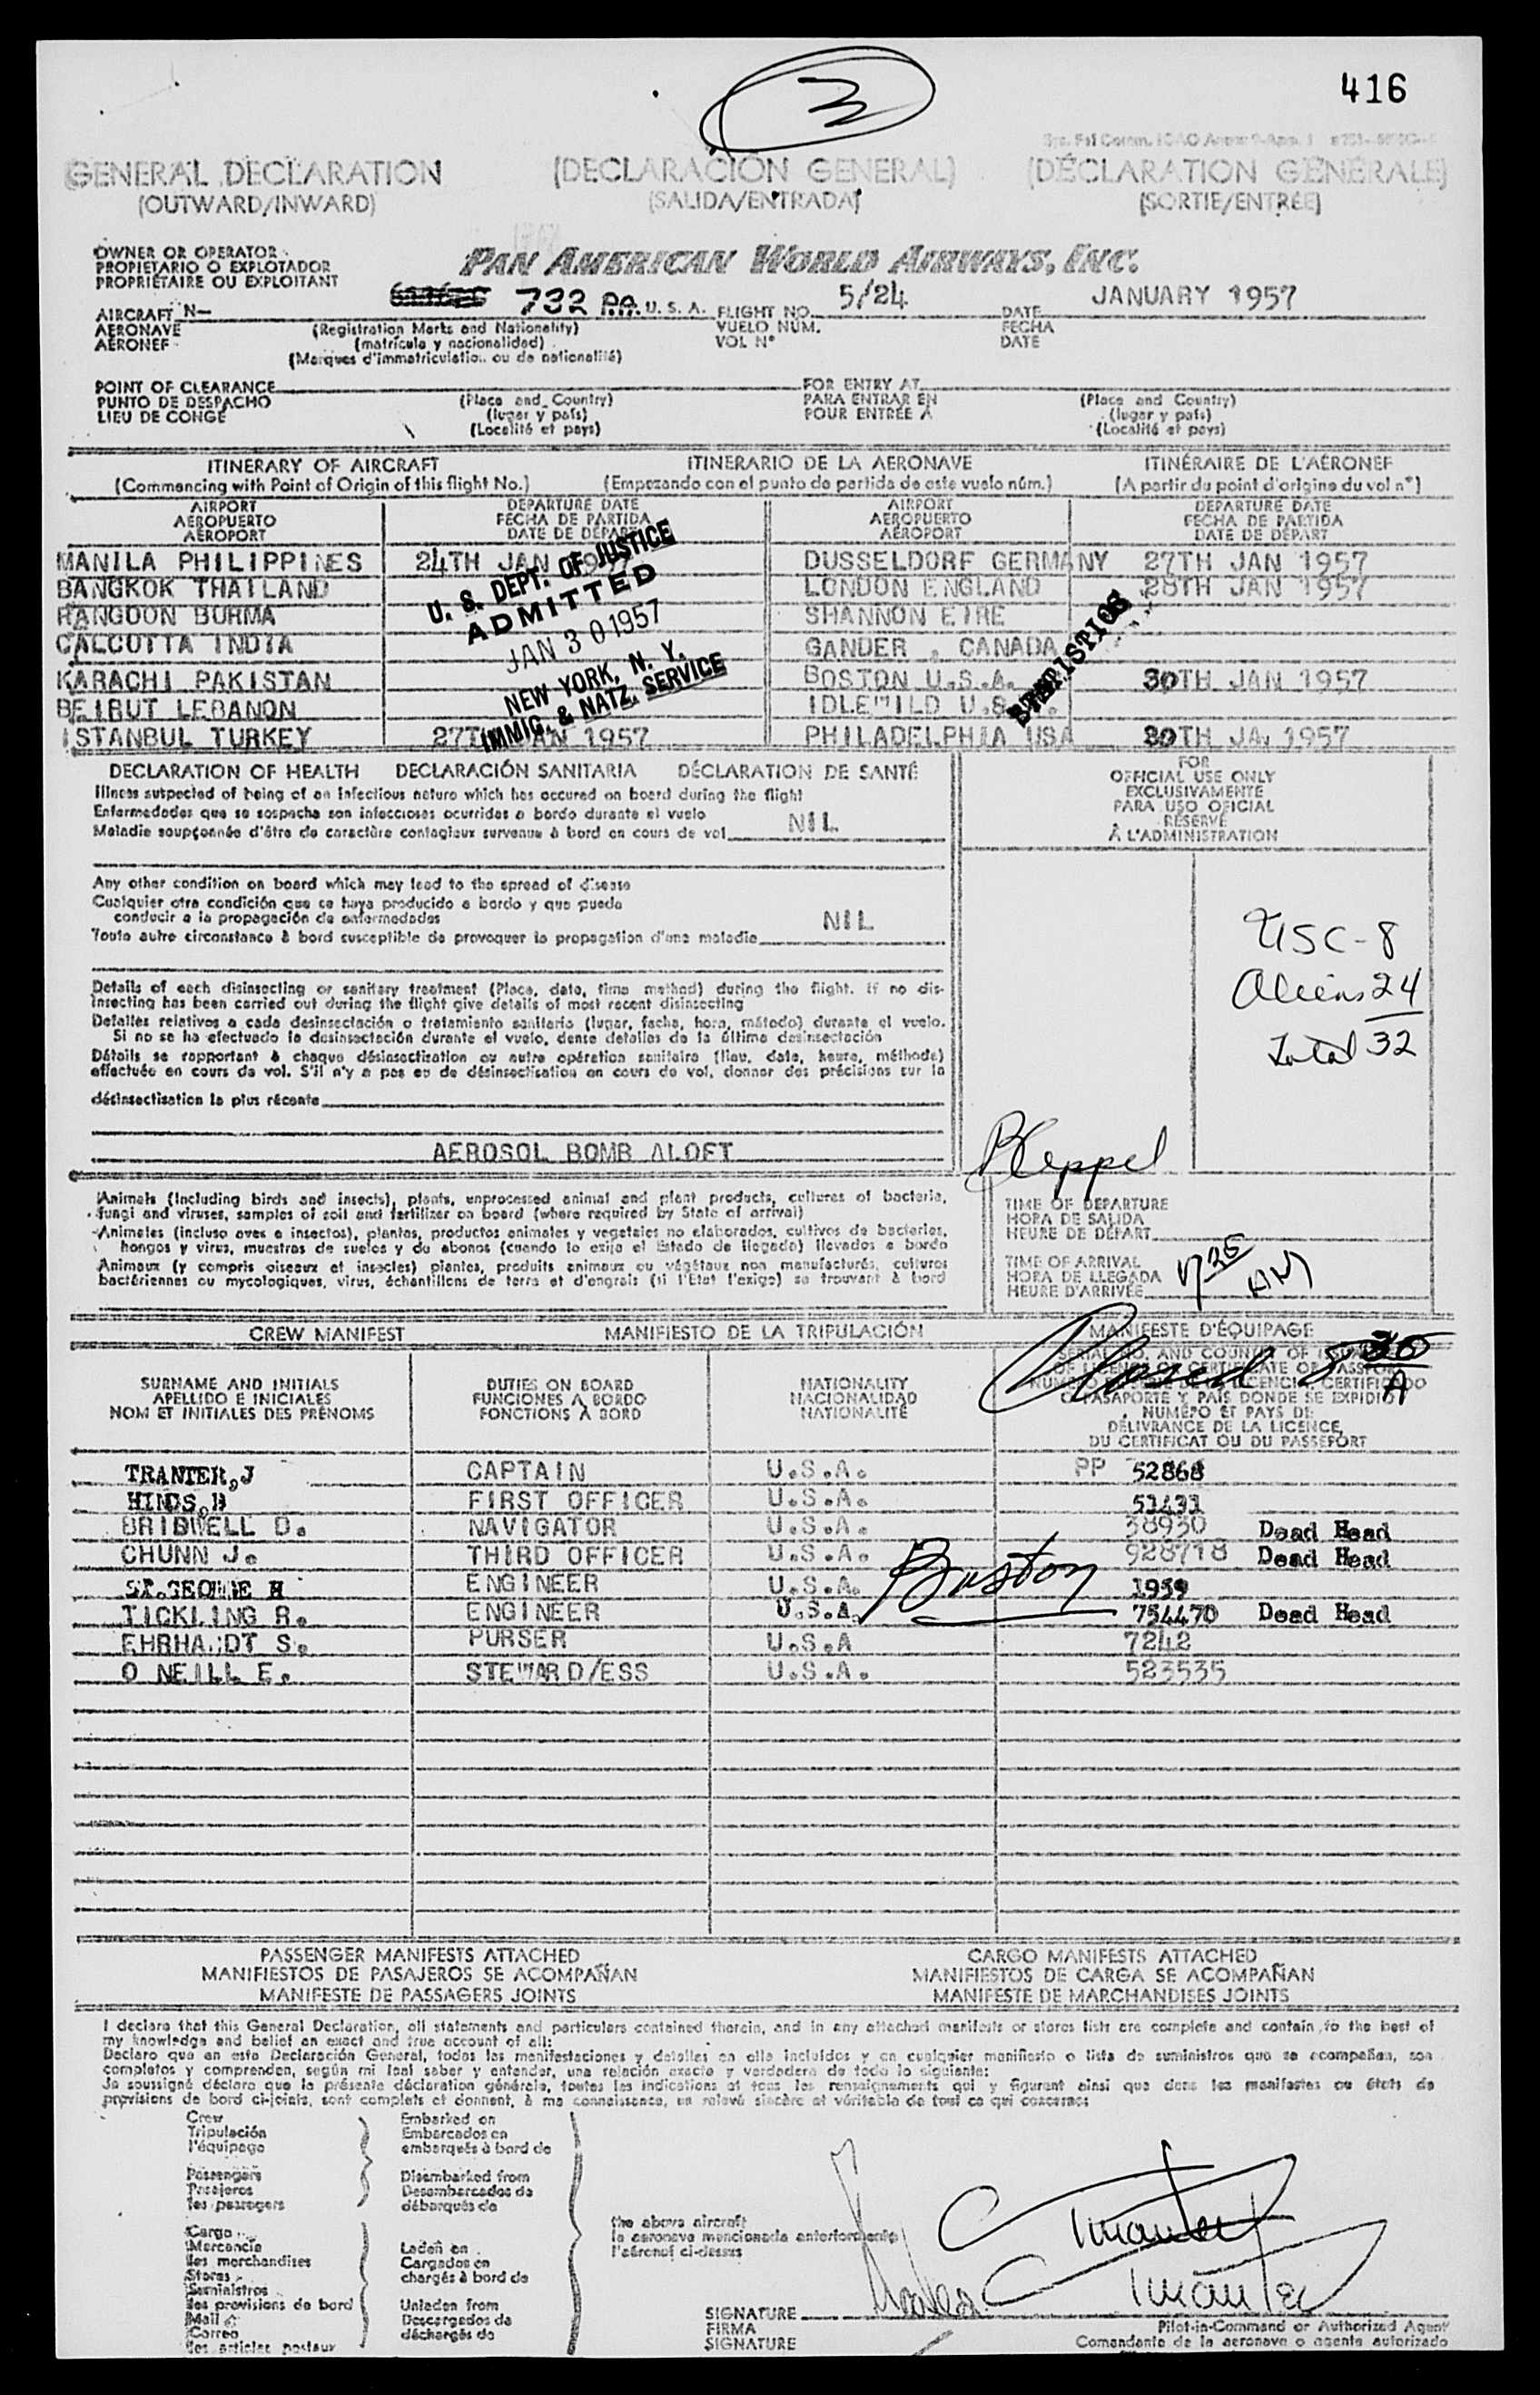 3
416
GENERAL DECLARATION (DECLARACIÓN GENERAL) (DÉCLARATION GÉNÉRALE)
(OUTWARD/INWARD) (SALIDA/ENTRADA) (SORTIE/ENTRÉE)
OWNER OR OPERATOR
PROPIETARIO O EXPLOTADOR
PROPRIÉTAIRE OU EXPLOITANT
PAN AMERICAN WORLD AIRWAYS, INC.
AIRCRAFT N- 732 PA. U. S. A. FLIGHT NO. 5/24 DATE JANUARY 1957
AERONAVE (Registration Marks and Nationality) VUELO NÚM. FECHA
AÉRONEF (matrícula y nacionalidad) VOL Nº DATE
(Marques d'immatriculation ou de nationalité)
POINT OF CLEARANCE FOR ENTRY AT
PUNTO DE DESPACHO (Place and Country) PARA ENTRAR EN (Place and Country)
LIEU DE CONGÉ (lugar y país) POUR ENTRÉE À (lugar y país)
(Localité et pays) (Localité et pays)
ITINERARY OF AIRCRAFT ITINERARIO DE LA AERONAVE ITINÉRAIRE DE L'AÉRONEF
(Commencing with Point of Origin of this flight No.) (Empezando con el punto de partida de este vuelo núm.) (A partir du point d'origine du vol nº)
AIRPORT DEPARTURE DATE AIRPORT DEPARTURE DATE
AEROPUERTO FECHA DE PARTIDA AEROPUERTO FECHA DE PARTIDA
AÉROPORT DATE DE DÉPART AÉROPORT DATE DE DÉPART
MANILA PHILIPPINES 24TH JAN 1957 DUSSELDORF GERMANY 27TH JAN 1957
BANGKOK THAILAND LONDON ENGLAND 28TH JAN 1957
RANGOON BURMA SHANNON EIRE
CALCUTTA INDIA GANDER , CANADA
KARACHI PAKISTAN BOSTON U.S.A. 30TH JAN 1957
BEIRUT LEBANON IDLEWILD U.S.A.
ISTANBUL TURKEY 27TH JAN 1957 PHILADELPHIA USA 30TH JAN 1957
U. S. DEPT. OF JUSTICE
ADMITTED
JAN 30 1957
NEW YORK, N. Y.
IMMIG. & NATZ. SERVICE
STATISTICS
DECLARATION OF HEALTH DECLARACIÓN SANITARIA DÉCLARATION DE SANTÉ
Illness suspected of being of an infectious nature which has occured on board during the flight
Enfermedades que se sospecha son infecciosas ocurridas a bordo durante el vuelo
Maladie soupçonnée d'être de caractère contagieux survenue à bord en cours de vol NIL
Any other condition on board which may lead to the spread of disease
Cualquier otra condición que se haya producido a bordo y que pueda
conducir a la propagación de enfermedades
Toute autre circonstance à bord susceptible de provoquer la propagation d'une maladie NIL
Details of each disinsecting or sanitary treatment (Place, date, time method) during the flight. If no dis-
insecting has been carried out during the flight give details of most recent disinsecting
Detalles relativos a cada desinsectación o tratamiento sanitario (lugar, fecha, hora, método) durante el vuelo.
Si no se ha efectuado la desinsectación durante el vuelo, dense detalles de la última desinsectación
Détails se rapportant à chaque désinsectisation ou autre opération sanitaire (lieu, date, heure, méthode)
effectuée en cours de vol. S'il n'y a pas eu de désinsectisation en cours de vol, donner des précisions sur la
désinsectisation la plus récente
AEROSOL BOMB ALOFT
FOR
OFFICIAL USE ONLY
EXCLUSIVAMENTE
PARA USO OFICIAL
RÉSERVÉ
À L'ADMINISTRATION
USC-8
Aliens 24
Total 32
Animals (Including birds and insects), plants, unprocessed animal and plant products, cultures of bacteria,
fungi and viruses, samples of soil and fertilizer on board (where required by State of arrival)
Animales (incluso aves e insectos), plantas, productos animales y vegetales no elaborados, cultivos de bacterias,
hongos y virus, muestras de suelos y de abonos (cuando lo exija el Estado de llegada) llevados a bordo
Animaux (y compris oiseaux et insectes) plantes, produits animaux ou végétaux non manufacturés, cultures
bactériennes ou mycologiques, virus, échantillons de terre et d'engrais (si l'État l'exige) se trouvant à bord
TIME OF DEPARTURE
HORA DE SALIDA
HEURE DE DÉPART
TIME OF ARRIVAL
HORA DE LLEGADA
HEURE D'ARRIVÉE 7 25 AM
CREW MANIFEST MANIFIESTO DE LA TRIPULACIÓN MANIFESTE D'ÉQUIPAGE
Closed 8 30 A
SURNAME AND INITIALS DUTIES ON BOARD NATIONALITY
APELLIDO E INICIALES FUNCIONES A BORDO NACIONALIDAD
NOM ET INITIALES DES PRÉNOMS FONCTIONS À BORD NATIONALITÉ
NUMÉRO ET PAYS DE
DÉLIVRANCE DE LA LICENCE,
DU CERTIFICAT OU DU PASSEPORT
TRANTER,J CAPTAIN U.S.A. PP 52868
HINDS,D FIRST OFFICER U.S.A. 51431
BRIDWELL D. NAVIGATOR U.S.A. 38930 Dead Head
CHUNN J. THIRD OFFICER U.S.A. 928718 Dead Head
ST.GEORGE H ENGINEER U.S.A. 1959
TICKLING R. ENGINEER U.S.A. 754470 Dead Head
EHRHARDT S. PURSER U.S.A 7242
O NEILL E. STEWARD/ESS U.S.A. 523535
Boston
PASSENGER MANIFESTS ATTACHED CARGO MANIFESTS ATTACHED
MANIFIESTOS DE PASAJEROS SE ACOMPAÑAN MANIFIESTOS DE CARGA SE ACOMPAÑAN
MANIFESTE DE PASSAGERS JOINTS MANIFESTE DE MARCHANDISES JOINTS
I declare that this General Declaration, all statements and particulars contained therein, and in any attached manifests or stores lists are complete and contain to the best of
my knowledge and belief an exact and true account of all:
Declaro que en esta Declaración General, todas las manifestaciones y detalles en ella incluídos y en cualquier manifiesto o lista de suministros que se acompañan, son
completos y comprenden, según mi leal saber y entender, una relación exacta y verdadera de todo lo siguiente:
Je soussigné déclare que la présente déclaration générale, toutes les indications et tous les renseignements qui y figurent ainsi que dans les manifestes ou états de
provisions de bord ci-joints, sont complets et donnent, à ma connaissance, un relevé sincère et véritable de tout ce qui concerne:
Crew Embarked on
Tripulación Embarcados en
l'équipage embarqués à bord de
Passengers Disembarked from
Pasajeros Desembarcados de
les passagers débarqués de
Cargo
Mercancía Laden on
les marchandises Cargados en
Stores chargés à bord de
Suministros
les provisions de bord Unladen from
Mail Descargados de
Correo déchargés de
les articles postaux
the above aircraft
la aeronave mencionada anteriormente
l'aéronef ci-dessus
Tranter
Tranter
SIGNATURE
FIRMA
SIGNATURE
Pilot-in-Command or Authorized Agent
Comandante de la aeronave o agente autorizado